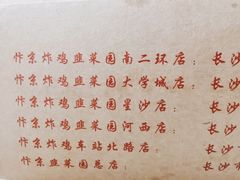 忭京炸鸡韭菜园南二环店：长沙
忭京炸鸡韭菜园大学城店：长沙
忭京炸鸡韭菜园星沙店：长沙
忭京炸鸡韭菜园河西店：长沙
忭京炸鸡车站北路店：长沙
忭京韭菜园总店：长沙